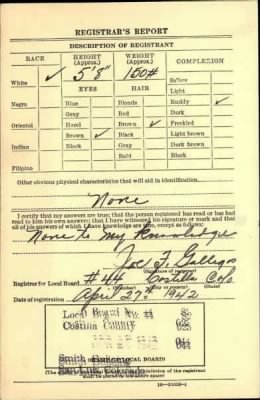 REGISTRAR'S REPORT
DESCRIPTION OF REGISTRANT
RACE HEIGHT (Approx.) WEIGHT (Approx.) COMPLEXION
White ✓ 5'8" 150# Sallow
EYES HAIR Light
Negro Blue Blonde Ruddy ✓
Gray Red Dark
Oriental Hazel Brown ✓ Freckled
Brown ✓ Black Light brown
Indian Black Gray Dark brown
Bald Black
Filipino
Other obvious physical characteristics that will aid in identification
None
I certify that my answers are true; that the person registered has read or has had
read to him his own answers; that I have witnessed his signature or mark and that
all of his answers of which I have knowledge are true, except as follows:
None to my Knowledge
Joe F. Gallegos
(Signature of registrar)
Registrar for Local Board #44 Costilla Colo
Date of registration April 27th 1942
Local Board No. 44
Costilla County
San Luis, Colorado
LOCAL BOARD)
(The registration of the registrant
shall be placed in the above space)